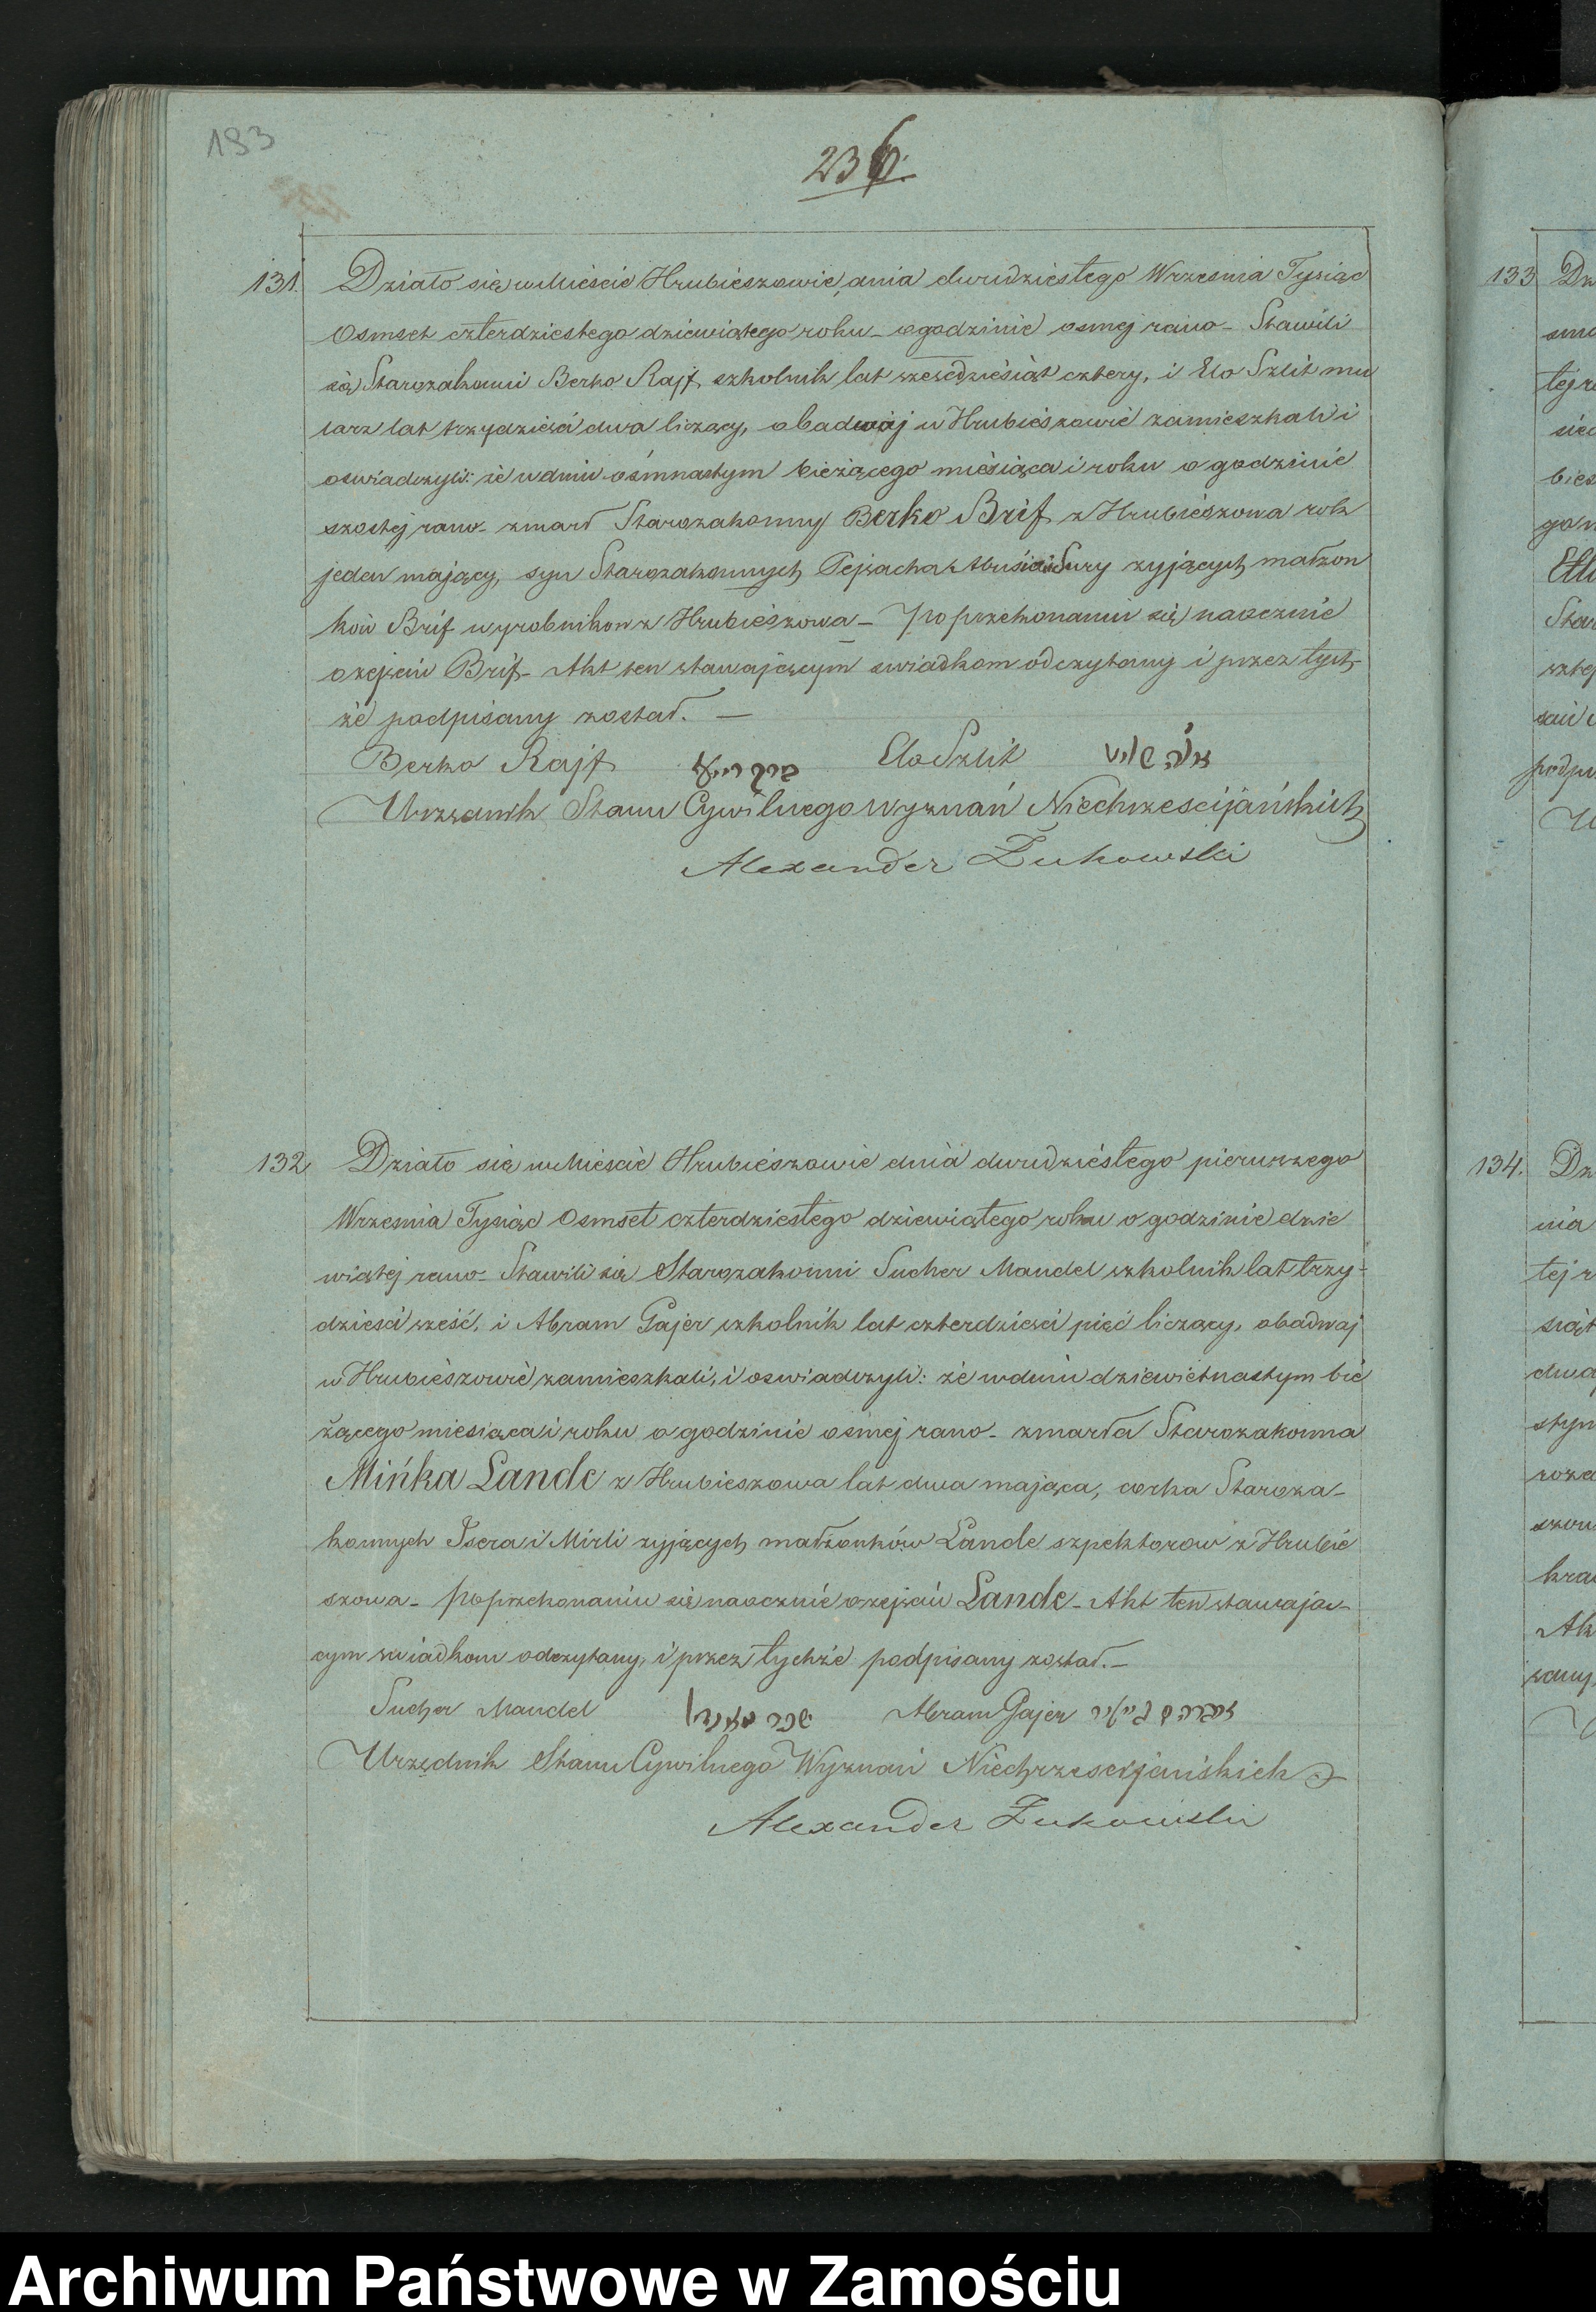 193
236.
131. Działo się w Mieście Hrubieszowie, dnia dwudziestego Wrzesnia Tysiąc
Osmset czterdziestego dziewiątego roku o godzinie osmej rano – Stawili
się Starozakonni Berko Rajf szkolnik lat sześćdziesiąt cztery, i Elo Szlit mu
larz lat trzydzieści dwa liczący, obadwaj w Hrubieszowie zamieszkali i
oswiadczyli: że w dniu osmnastym bieżącego miesiąca i roku o godzinie
szostej rano – zmarł Starozakonny Berko Brif z Hrubieszowa rok
jeden mający, syn Starozakonnych Pejsacha Abusia i Sury żyjących małżon
ków Brif wyrobnikow z Hrubieszowa – Po przekonaniu się naocznie
o zejściu Brif – Akt ten stawającym swiadkom odczytany i przez tych
że podpisany został. —
Berko Rajf Elo Szlit
Urzędnik Stanu Cywilnego Wyznań Niechrzescijańskich
Alexander Żukowski
132, Działo się w Mieście Hrubieszowie dnia dwudziestego pierwszego
Wrzesnia Tysiąc Osmset czterdziestego dziewiątego roku o godzinie dzie
wiątej rano – Stawili się Starozakonni Sucher Mandel szkolnik lat trzy-
dzieści sześć, i Abram Gajer szkolnik lat czterdzieści pięć liczący, obadwaj
w Hrubieszowie zamieszkali, i oswiadczyli: że w dniu dziewietnastym bie
żącego miesiąca i roku o godzinie osmej rano – zmarła Starozakonna
Mińka Lande z Hrubieszowa lat dwa mająca, corka Staroza-
konnych Isera i Mirli żyjących małżonków Lande szpektorow z Hrubie
szowa – Po przekonaniu się naocznie o zejściu Lande – Akt ten stawają-
cym swiadkom odczytany, i przez tychże podpisany został. –
Sucher Mandel שכר מאנדל Abram Gajer אברהם גייער
Urzędnik Stanu Cywilnego Wyznań Niechrzescijańskich
Alexander Żukowski
133
134.
Archiwum Państwowe w Zamościu